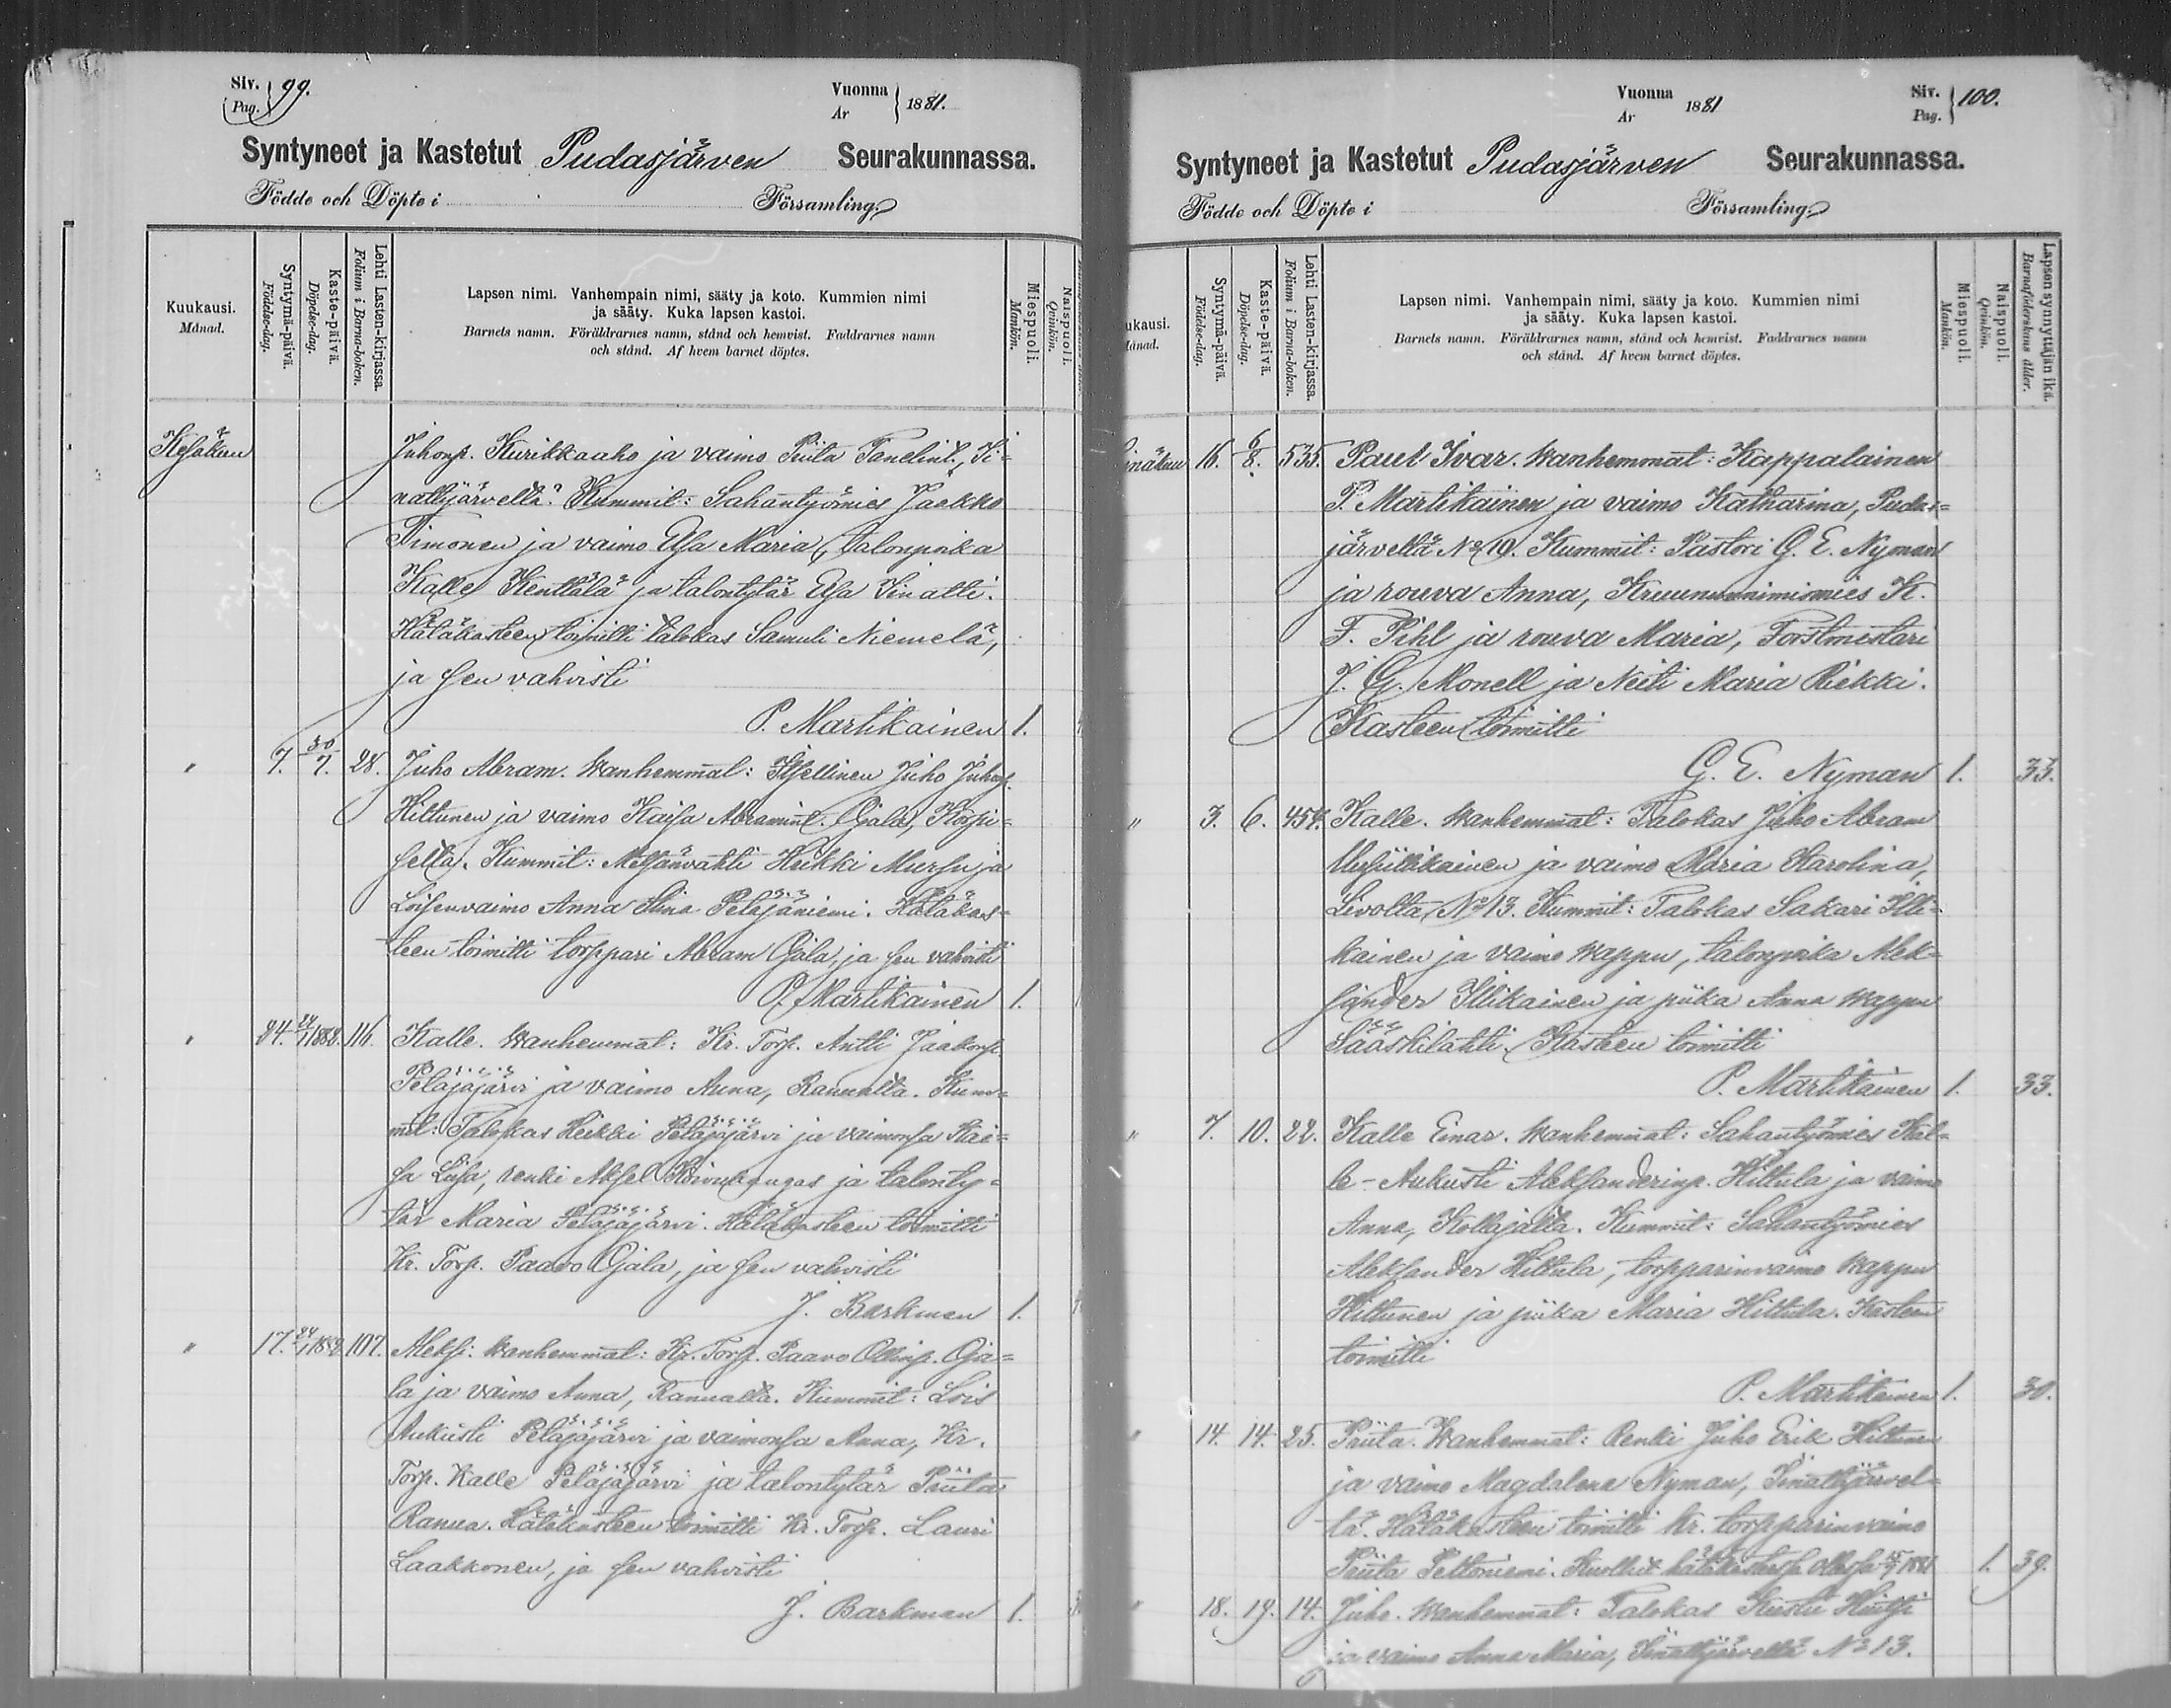 Siv. Pag. 99.
Vuonna Ar 1881.
Syntyneet ja Kastetut Pudasjärven Seurakunnassa.
Födde och Döpte i Församling.
Kuukausi. Månad.
Syntymä-päivä. Födelse-dag.
Kaste-päivä. Döpelse-dag.
Lehti Lasten-kirjassa. Folium i Barna-boken.
Lapsen nimi. Vanhempain nimi, sääty ja koto. Kummien nimi
ja sääty. Kuka lapsen kastoi.
Barnets namn. Föräldrarnes namn, stånd och hemvist. Faddrarnes namn
och stånd. Af hvem barnet döptes.
Miespuoli. Mankön.
Naispuoli. Qvinkön.
Kesäkuu Juhonp. Kurikkaaho ja vaimo Piita Tanelint., Si=
nattijärveltä. Kummit: Sahantyömies Jaakko
Timonen ja vaimo Elsa Maria, talonpoika
Kalle Kenttälä ja talontytär Elsa Sinatti.
Hätäkasteen toimitti talokas Samuli Niemelä,
ja sen vahvisti
P. Martikainen 1.
" 7. 30/7. 28. Juho Abram. Wanhemmat: Itsellinen Juho Juhonp.
Hiltunen ja vaimo Kaisa Abramint. Ojala, Korpi=
selta. Kummit: Metsänvahti Heikki Mursu ja
Loisenvaimo Anna Stina Peläjäniemi. Hätäkas=
teen toimitti torppari Abram Ojala, ja sen vahvisti
P. Martikainen 1.
" 24. 24/1 1882. 116. Kalle. Wanhemmat: Kr. Torp. Antti Jaakonp.
Peläjäjärvi ja vaimo Anna, Ranualta. Kum=
mit: Talokas Heikki Peläjäjärvi ja vaimonsa Kai=
sa Liisa, renki Aksel Hirvikangas ja talonty=
tär Maria Peläjäjärvi. Hätäkasteen toimitti
Kr. Torp. Paavo Ojala, ja sen vahvisti
J. Barkman 1.
" 17. 24/1 1882. 107. Aleksi. Wanhemmat: Kr. Torp. Paavo Ollinp. Oja=
la ja vaimo Anna, Ranualta. Kummit: Lois
Aukusti Peläjäjärvi ja vaimonsa Anna, Kr.
Torp. Kalle Peläjäjärvi ja talontytär Piita
Ranua. Hätäkasteen toimitti Kr. Torp. Lauri
Laakkonen, ja sen vahvisti
J. Barkman 1.
Vuonna Ar 1881
Siv. Pag. 100.
Syntyneet ja Kastetut Pudasjärven Seurakunnassa.
Födde och Döpte i Församling.
ukausi. Månad.
Syntymä-päivä. Födelse-dag.
Kaste-päivä. Döpelse-dag.
Lehti Lasten-kirjassa. Folium i Barna-boken.
Lapsen nimi. Vanhempain nimi, sääty ja koto. Kummien nimi
ja sääty. Kuka lapsen kastoi.
Barnets namn. Föräldrarnes namn, stånd och hemvist. Faddrarnes namn
och stånd. Af hvem barnet döptes.
Miespuoli. Mankön.
Naispuoli. Qvinkön.
Lapsen synnyttäjän ikä. Barnaföderskans ålder.
inäkuu 16. 6/8. 535. Paul Ivar. Wanhemmat: Kappalainen
P. Martikainen ja vaimo Katharina, Pudas=
järveltä No 10. Kummit: Pastori G. E. Nyman
ja rouva Anna, Kruununnimismies K.
F. Pihl ja rouva Maria, Forstmestari
J. G. Monell ja Neiti Maria Riekki.
Kasteen toimitti
G. E. Nyman 1. 33.
" 3. 6. 454. Kalle. Wanhemmat: Talokas Juho Abram
ja vaimo Maria Karolina,
Livolta, No 13. Kummit: Talokas Sakari Illi=
kainen ja vaimo Wappu, talonpoika Alek=
sander Illikainen ja piika Anna Wappu
Sääskilahti. Kasteen toimitti
P. Martikainen 1. 33.
" 7. 10. 22. Kalle Einar. Wanhemmat: Sahantyömies Kal=
le Aukusti Aleksanderinp. Hiltula ja vaimo
Anna, Kollajalta. Kummit: Sahantyömies
Aleksander Hiltula, torpparinvaimo Wappu
Hiltunen ja piika Maria Hiltula. Kasteen
toimitti
P. Martikainen 1. 30.
" 14. 14. 25. Piita. Wanhemmat: Renki Juho Erik Hiltunen
ja vaimo Magdalena Nyman, Sinattijärvel=
tä. Hätäkasteen toimitti Kr. torpparinvaimo
Piita Peltoniemi. Kuollut hätäkasteessa ollessa 15/7 1881 1. 39.
" 18. 19. 14. Juho. Wanhemmat: Talokas Kusti
ja vaimo Anna Maria, Sinattijärveltä No 13.